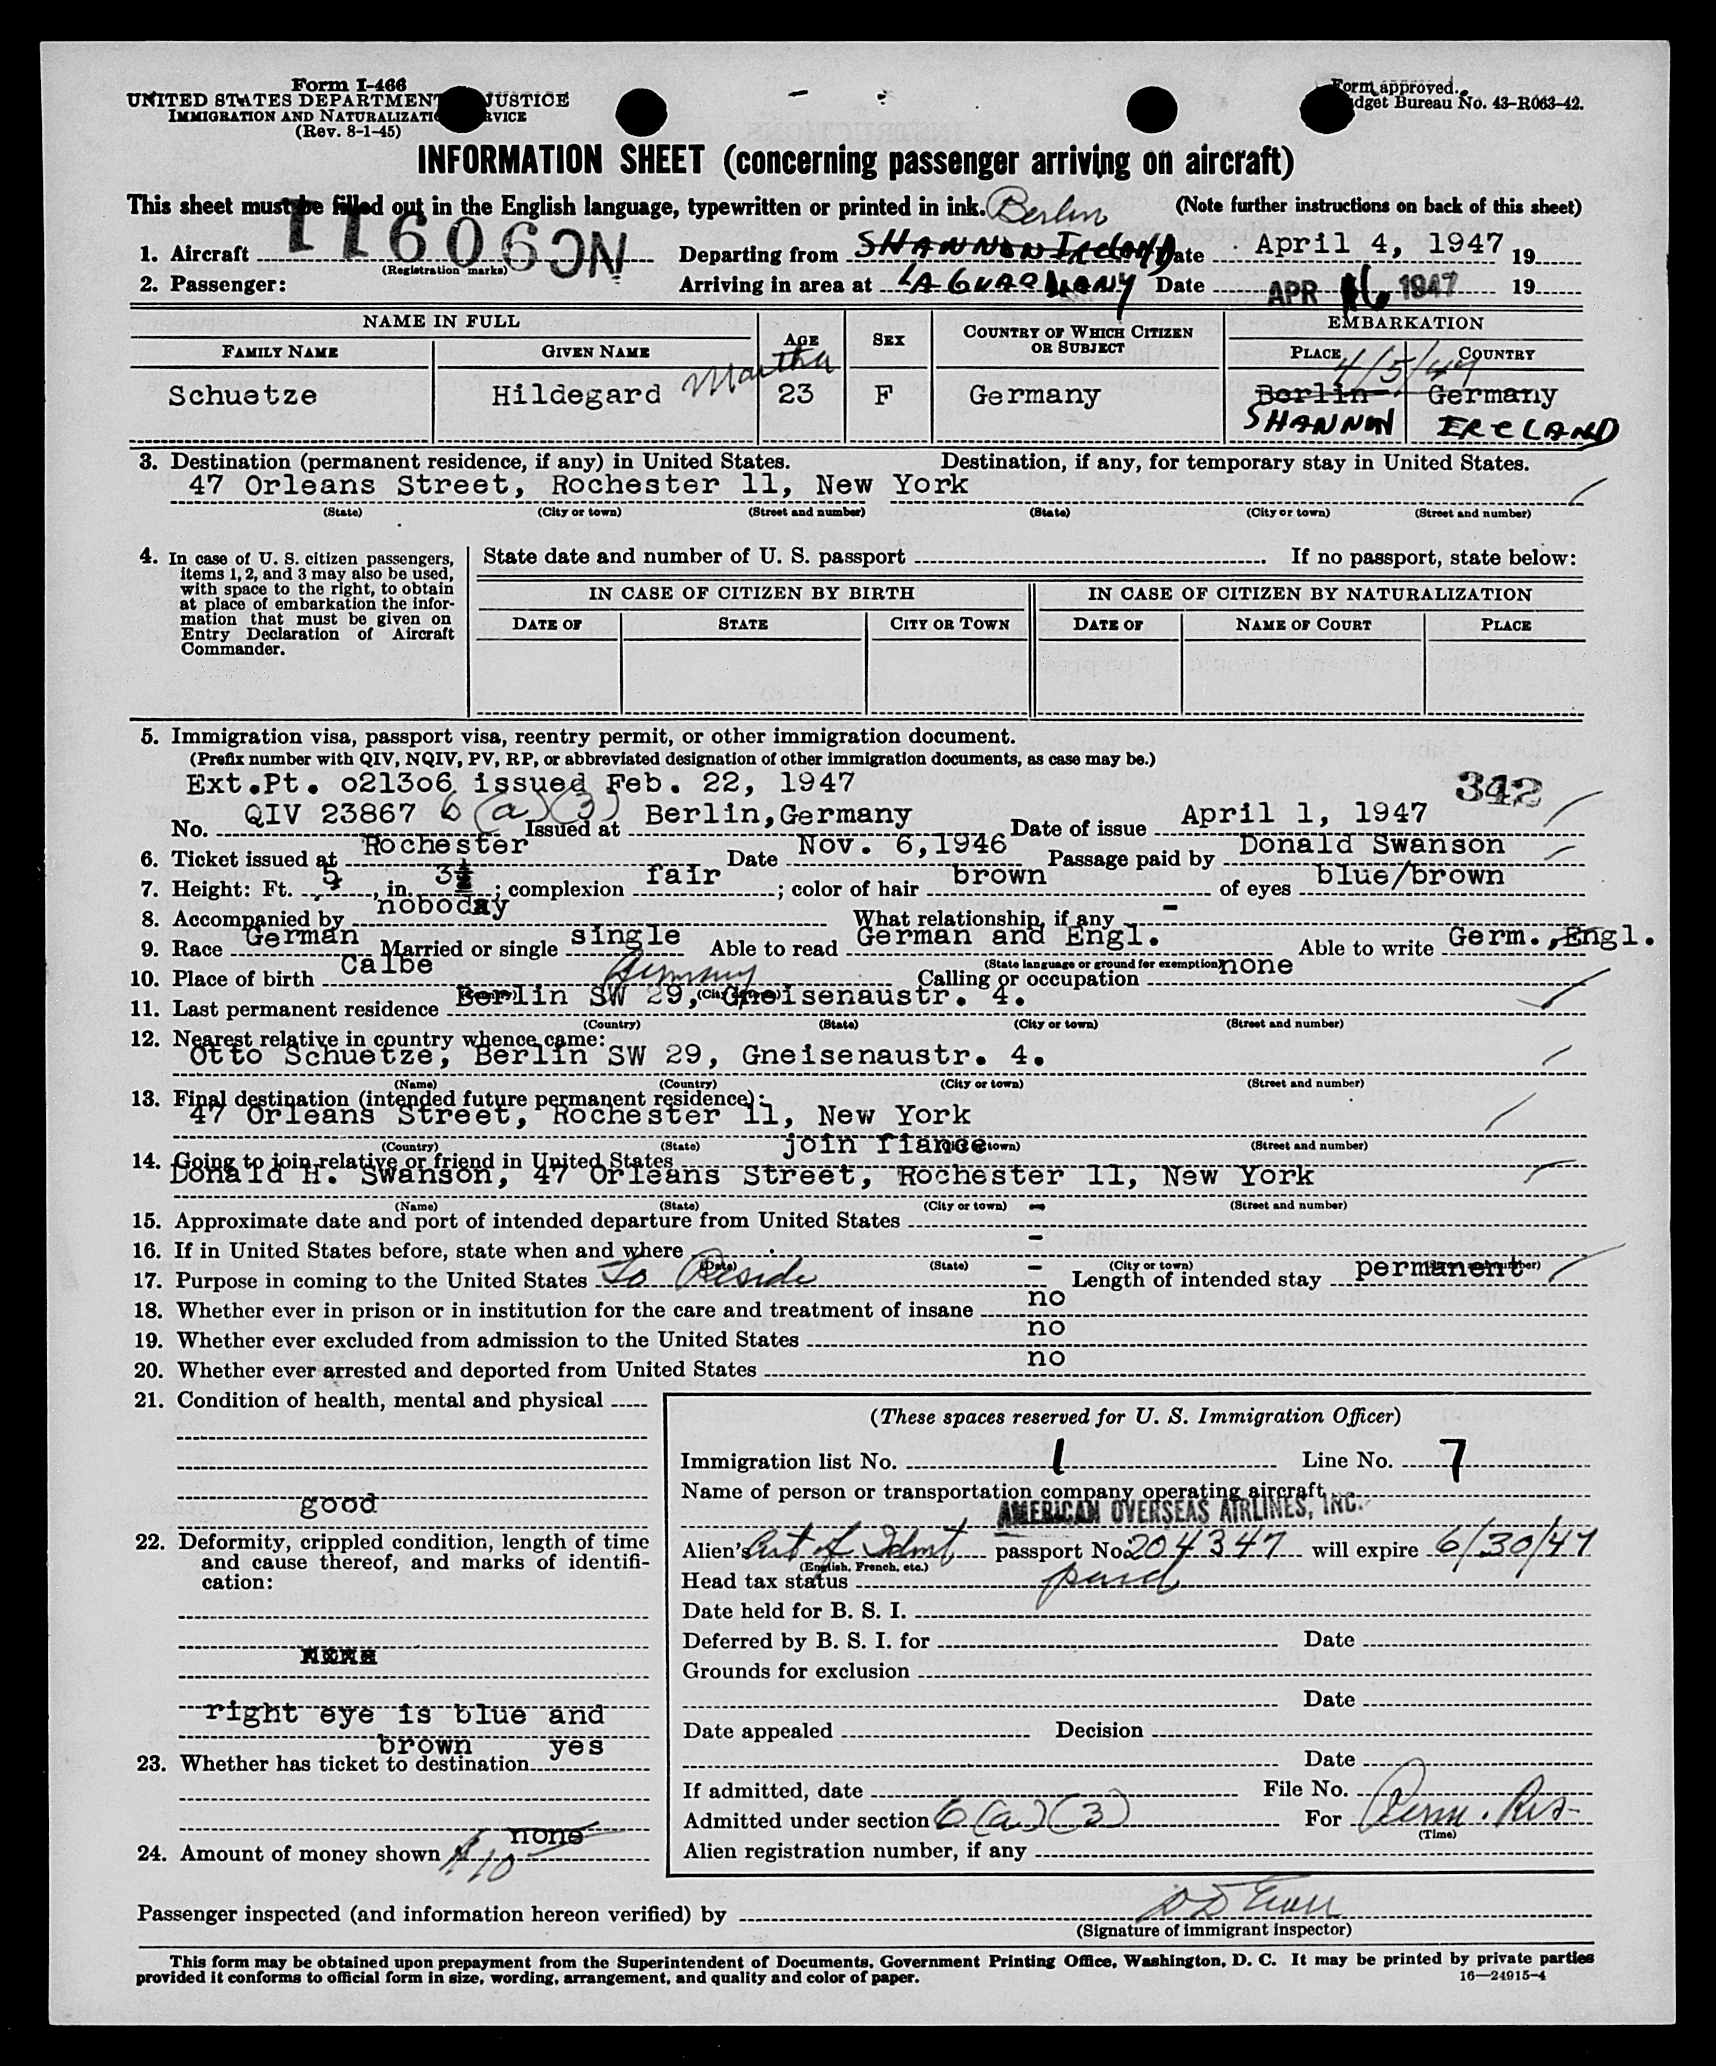 Form I-466
UNITED STATES DEPARTMENT JUSTICE
IMMIGRATION AND NATURALIZATI RVICE
(Rev. 8-1-45)
Form approved.
dget Bureau No. 43-R063-42.
INFORMATION SHEET (concerning passenger arriving on aircraft)
This sheet must be filled out in the English language, typewritten or printed in ink. Berlin (Note further instructions on back of this sheet)
1. Aircraft NC90911 (Registration marks) Departing from SHANNON IRELAND Date April 4, 1947 19
2. Passenger: Arriving in area at LA GUARDIA NY Date APR 16 1947 19
NAME IN FULL AGE SEX COUNTRY OF WHICH CITIZEN OR SUBJECT EMBARKATION
FAMILY NAME GIVEN NAME PLACE COUNTRY
Martha 4/5/47
Schuetze Hildegard 23 F Germany Berlin Germany
SHANNON IRELAND
3. Destination (permanent residence, if any) in United States. Destination, if any, for temporary stay in United States.
47 Orleans Street, Rochester 11, New York
(State) (City or town) (Street and number) (State) (City or town) (Street and number)
4. In case of U. S. citizen passengers, items 1, 2, and 3 may also be used, with space to the right, to obtain at place of embarkation the information that must be given on Entry Declaration of Aircraft Commander.
State date and number of U. S. passport If no passport, state below:
IN CASE OF CITIZEN BY BIRTH IN CASE OF CITIZEN BY NATURALIZATION
DATE OF STATE CITY OR TOWN DATE OF NAME OF COURT PLACE
5. Immigration visa, passport visa, reentry permit, or other immigration document.
(Prefix number with QIV, NQIV, PV, RP, or abbreviated designation of other immigration documents, as case may be.)
Ext.Pt. o213o6 issued Feb. 22, 1947 342
No. QIV 23867 6(a)(3) Issued at Berlin, Germany Date of issue April 1, 1947
6. Ticket issued at Rochester Date Nov. 6,1946 Passage paid by Donald Swanson
7. Height: Ft. 5, in. 3½; complexion fair; color of hair brown of eyes blue/brown
8. Accompanied by nobody What relationship, if any -
9. Race German Married or single single Able to read German and Engl. Able to write Germ.,Engl.
(State language or ground for exemption)
10. Place of birth Calbe Germany Calling or occupation none
11. Last permanent residence Berlin SW 29, Gneisenaustr. 4.
(Country) (State) (City or town) (Street and number)
12. Nearest relative in country whence came:
Otto Schuetze, Berlin SW 29, Gneisenaustr. 4.
(Name) (Country) (City or town) (Street and number)
13. Final destination (intended future permanent residence):
47 Orleans Street, Rochester 11, New York
(Country) (State) (City or town) (Street and number)
14. Going to join relative or friend in United States join fiance
Donald H. Swanson, 47 Orleans Street, Rochester 11, New York
(Name) (State) (City or town) (Street and number)
15. Approximate date and port of intended departure from United States -
16. If in United States before, state when and where -
(Date) (State) (City or town) (Street and number)
17. Purpose in coming to the United States To Reside - Length of intended stay permanent
18. Whether ever in prison or in institution for the care and treatment of insane no
19. Whether ever excluded from admission to the United States no
20. Whether ever arrested and deported from United States no
21. Condition of health, mental and physical
good
22. Deformity, crippled condition, length of time and cause thereof, and marks of identification:
right eye is blue and
brown
23. Whether has ticket to destination yes
24. Amount of money shown none $10
(These spaces reserved for U. S. Immigration Officer)
Immigration list No. 1 Line No. 7
Name of person or transportation company operating aircraft
AMERICAN OVERSEAS AIRLINES, INC.
Alien's Cert of Ident passport No. 204347 will expire 6/30/47
(English, French, etc.)
Head tax status paid
Date held for B. S. I.
Deferred by B. S. I. for Date
Grounds for exclusion
Date
Date appealed Decision
Date
If admitted, date File No.
Admitted under section 6(a)(3) For Perm. Res-
(Time)
Alien registration number, if any
Passenger inspected (and information hereon verified) by
(Signature of immigrant inspector)
This form may be obtained upon prepayment from the Superintendent of Documents, Government Printing Office, Washington, D. C. It may be printed by private parties
provided it conforms to official form in size, wording, arrangement, and quality and color of paper.
16—24915-4